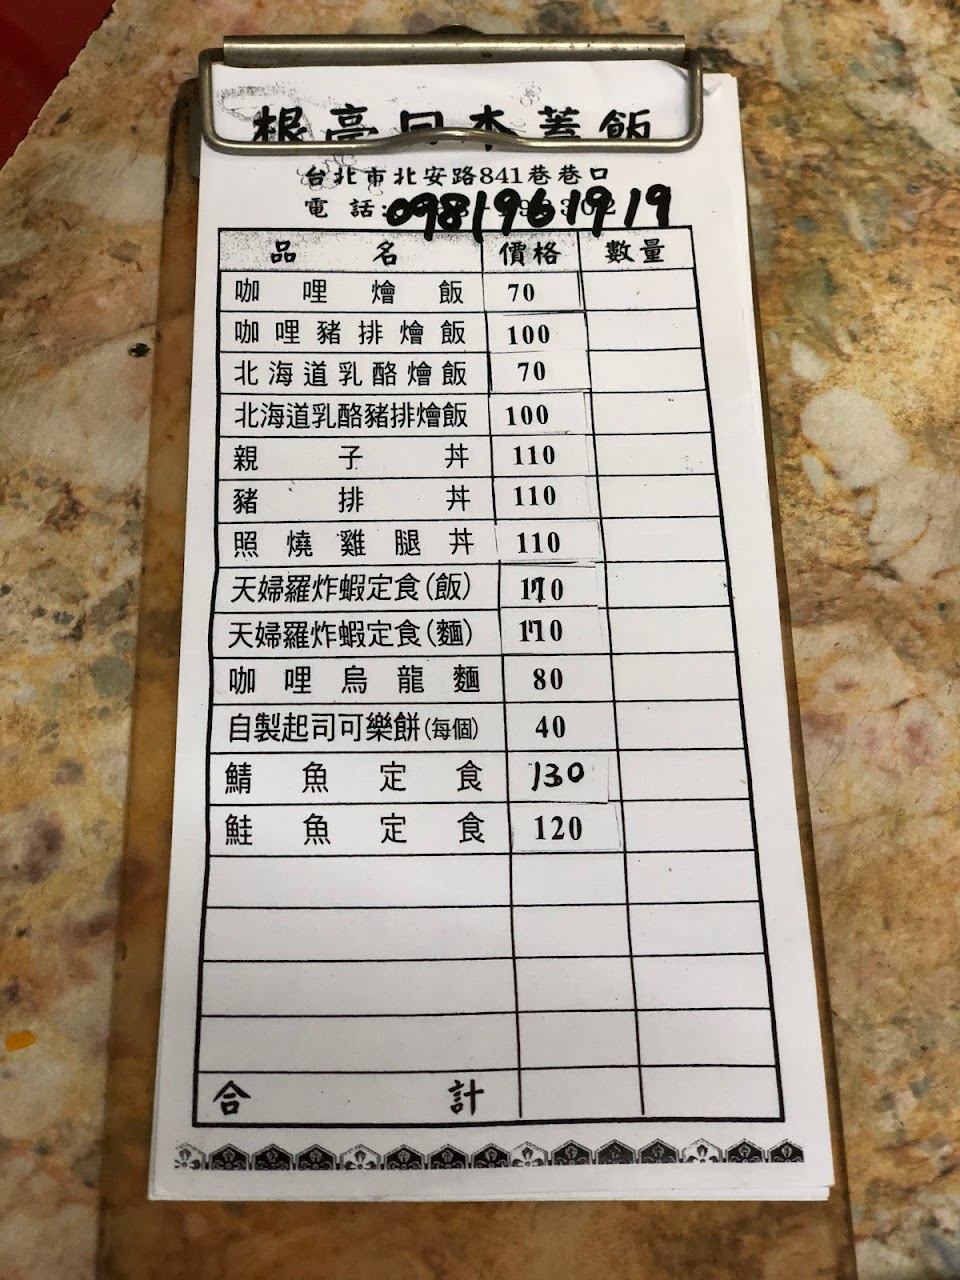 根亭日本蓋飯
台北市北安路841巷巷口
電話:0981961919
品名 價格 數量
咖哩燴飯 70
咖哩豬排燴飯 100
北海道乳酪燴飯 70
北海道乳酪豬排燴飯 100
親子丼 110
豬排丼 110
照燒雞腿丼 110
天婦羅炸蝦定食(飯) 170
天婦羅炸蝦定食(麵) 170
咖哩烏龍麵 80
自製起司可樂餅(每個) 40
鯖魚定食 130
鮭魚定食 120
合計